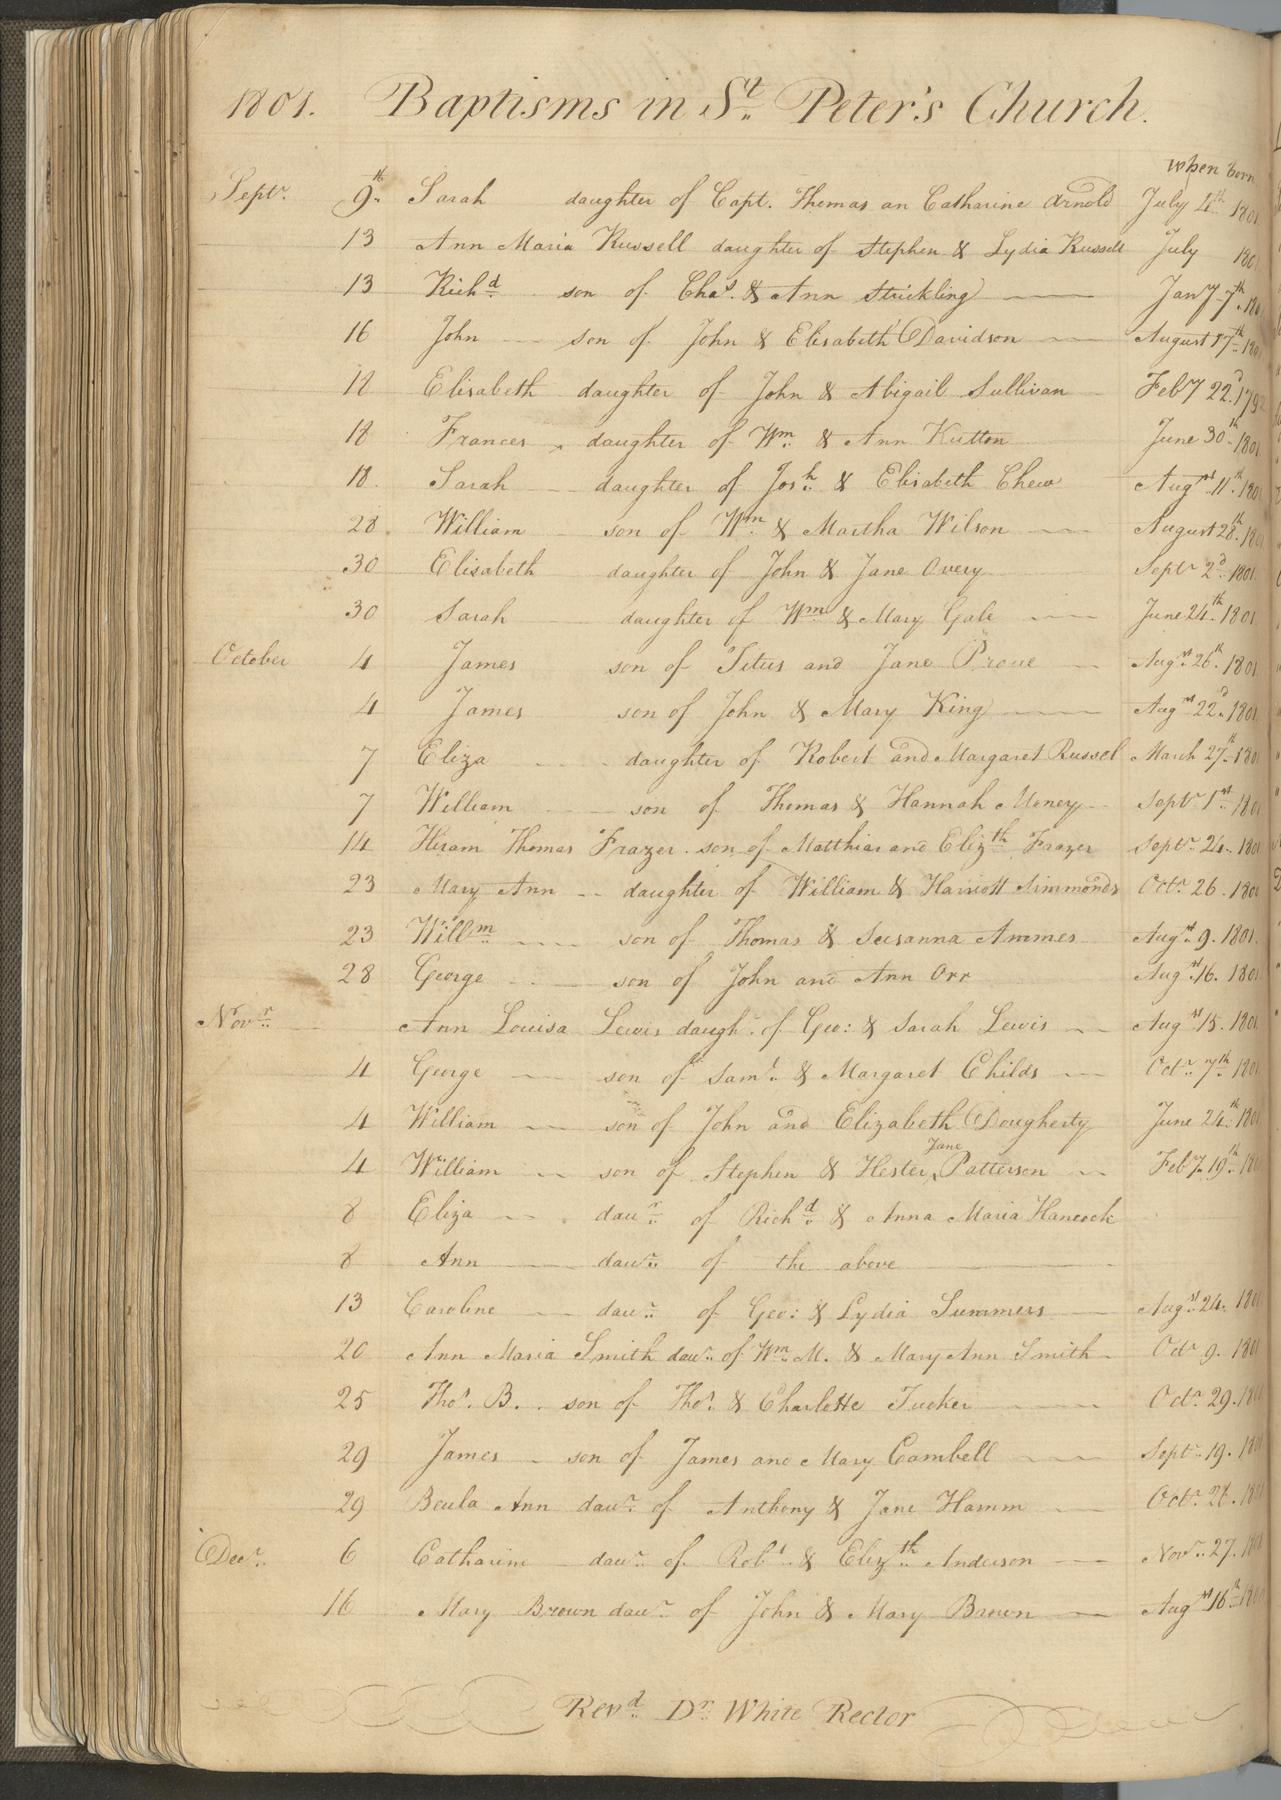 1801. Baptisms in St. Peter's Church.
when born
Septr. 9th Sarah daughter of Capt. Thomas an Catharine Arnold July 4th 1801
13 Ann Maria Russell daughter of Stephen & Lydia Russell July 1801
13 Richd. son of Chas. & Ann Strickling Jany 7th. 180
16 John son of John & Elisabeth Davidson August 17th 180
18 Elisabeth daughter of John & Abigail Sullivan Feby 22d. 179
18 Frances daughter of Wm. & Ann Hutton June 30th 1801
18. Sarah daughter of Josh. & Elisabeth Chew Augst 11th. 180
28 William son of Wm. & Martha Wilson August 28th. 180
30 Elisabeth daughter of John & Jane Overy Septr 2d 1801
30 Sarah daughter of Wm. & Mary Gale June 24th. 1801
October 4 James son of Titus and Jane Augst. 26th. 1801
4 James son of John & Mary King Augst 22d. 1801
7 Eliza daughter of Robert and Margaret Russel March 27th 1801
7 William son of Thomas & Hannah Septr 1st 180
14 Hiram Thomas Frazer. son of Matthias and Elizth Frazer Septr. 24. 180
23 Mary Ann daughter of William & Harriott Simmonds Octr. 26. 1801
23 Willm. son of Thomas & Susanna Ammes Augst. 9. 1801.
28 George son of John and Ann Orr Augst. 16. 1801
Novr. Ann Louisa Lewis daughr. of Geo: & Sarah Lewis Augst 15. 1801
4 George son of Saml. & Margaret Childs Octr. 7th 1801
4 William son of John and Elizabeth Dougherty June 24th. 1801
Jane
4 William son of Stephen & Hester ‸ Patterson Feby. 19th 180
8 Eliza daur. of Richd. & Anna Maria Hancock
8 Ann daur. of the above
13 Caroline daur. of Geo: & Lydia Summers Augst. 24. 180
20 Ann Maria Smith daur. of Wm. M. & Mary Ann Smith Octr 9. 1801
25 Thos. B. son of Thos. & Charlotte Tucker Octr. 29. 180
29 James son of James and Mary Cambell Septr. 19. 180
29 Beula Ann daur. of Anthony & Jane Hamm Octr. 28. 180
Decr. 6 Catharine daur. of Robt. & Elizth. Anderson Novr. 27. 180
16 Mary Brown daur. of John & Mary Brown Augst 16th 180
Revd. Dr. White Rector